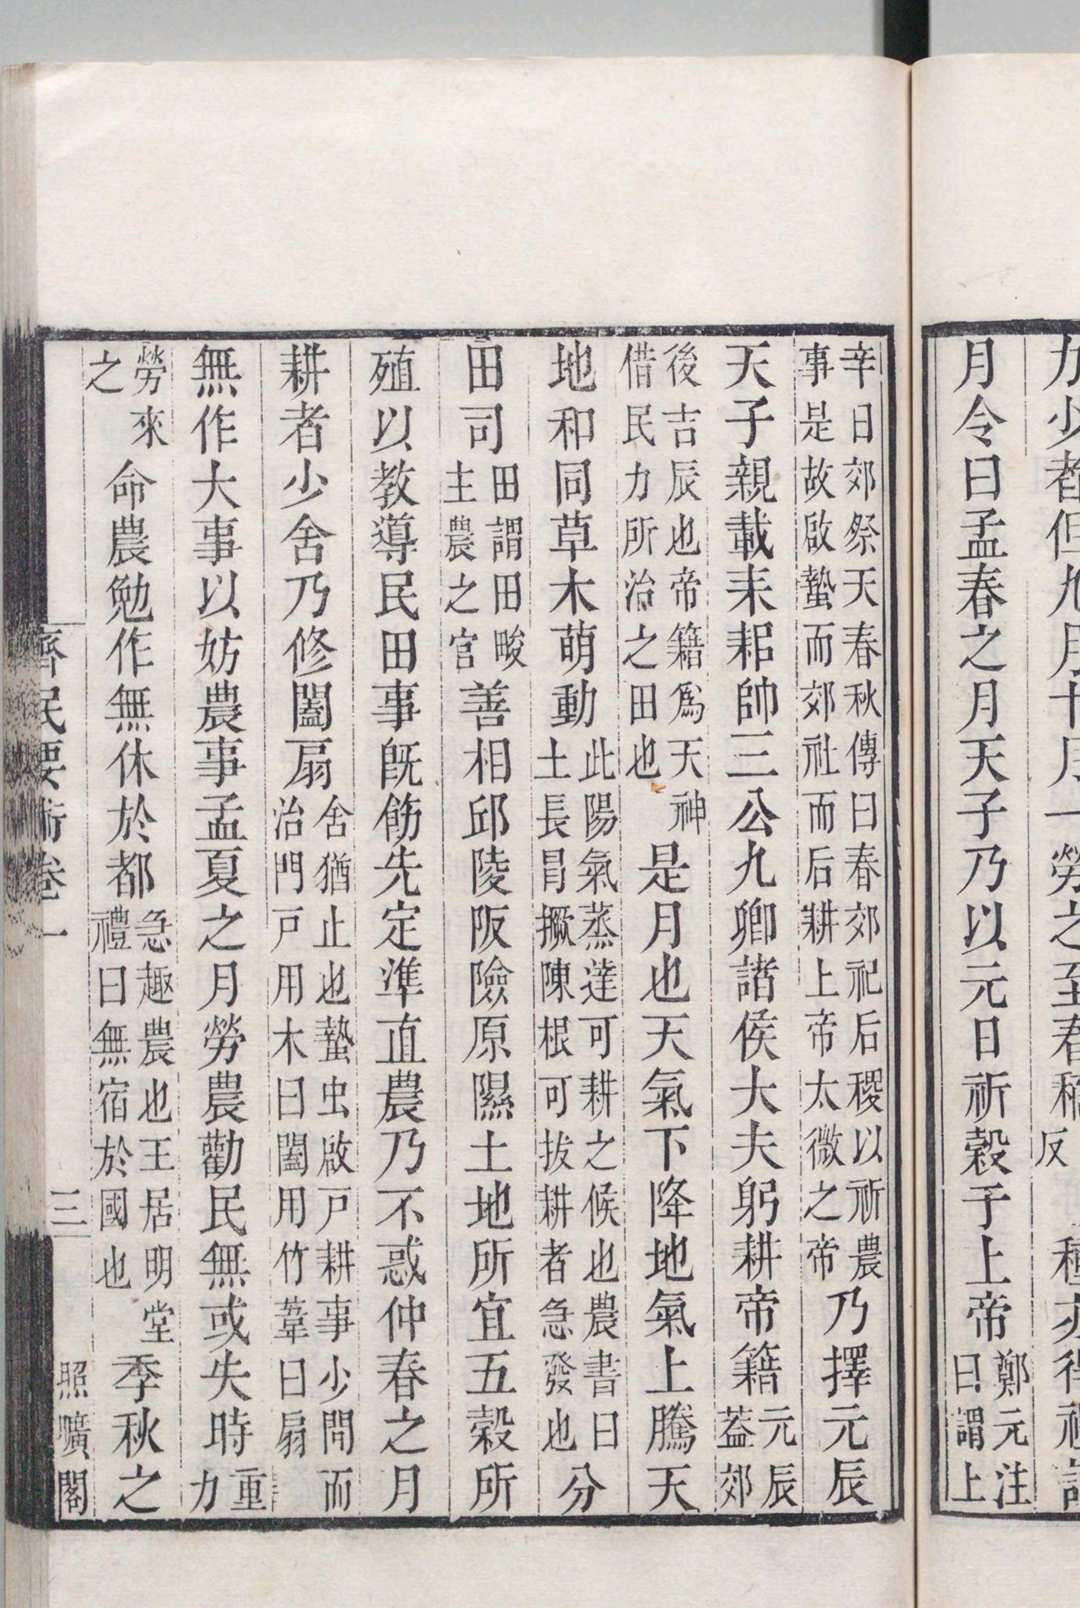 力少者但九月十月一勞之至春稿反種亦得禮記
月令曰孟春之月天子乃以元日祈穀于上帝鄭元注曰謂上
辛日郊祭天春秋傳曰春郊祀后稷以祈農事是故啟蟄而郊社而后耕上帝太微之帝乃擇元辰
天子親載耒耜帥三公九卿諸侯大夫躬耕帝籍元辰蓋郊
後吉辰也帝籍爲天神借民力所治之田也是月也天氣下降地氣上騰天
地和同草木萌動此陽氣蒸達可耕之候也農書曰土長冒橛陳根可拔耕者急發也分
田司田謂田畯主農之官善相邱陵阪險原隰土地所宜五穀所
殖以教導民田事既飭先定準直農乃不惑仲春之月
耕者少舍乃修闔扇舍猶止也蟄虫啟戶耕事少間而治門戶用木曰闔用竹葦曰扇
無作大事以妨農事孟夏之月勞農勸民無或失時重力
勞來之命農勉作無休於都急趣農也王居明堂禮曰無宿於國也季秋之
齊民要術卷一 三 照曠閣